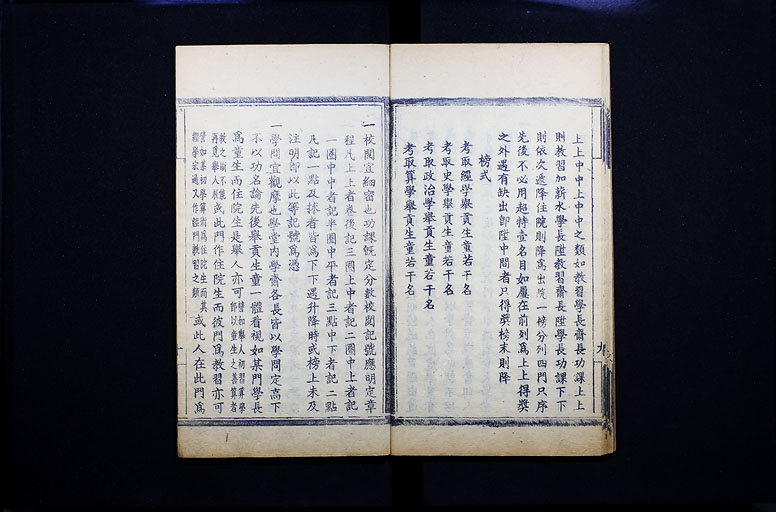 上上中中上中中之類如教習學長齋長功課上上
則教習加薪水學長陞教習齋長陞學長功課下下
則依次遞降住院則降爲出院一榜分列四門只序
先後不必用超特壹名目如屢在前列爲上上得獎
之外遇有缺出卽陞中間者只得獎榜末則降
榜式
考取經學舉貢生童若干名
考取史學舉貢生童若干名
考取政治學舉貢生童若干名
考取算學舉貢生童若干名
九
一校閱宜細密也功課旣定分數校閱記號應明定章
程凡上上者卷後記三圈上中者記二圈中上者記
一圈中中者記半圈中平者記三點中下者記二點
凡記一點及抹者皆爲下下遇升降時或榜上未及
注明卽以此等記號爲憑
一學問宜觀摩也學堂內學齋各長皆以學問定高下
不以功名論先後舉貢生童一體看視如某門學長
爲童生而住院生是舉人亦可譬如舉人初習算學
卽以童生之善算者
教之斷不能
再覓舉人教或此門作住院生而彼門爲教習亦可
譬如某初學算術爲住院生而其
經學宏通又作經門教習之類或此人在此門爲